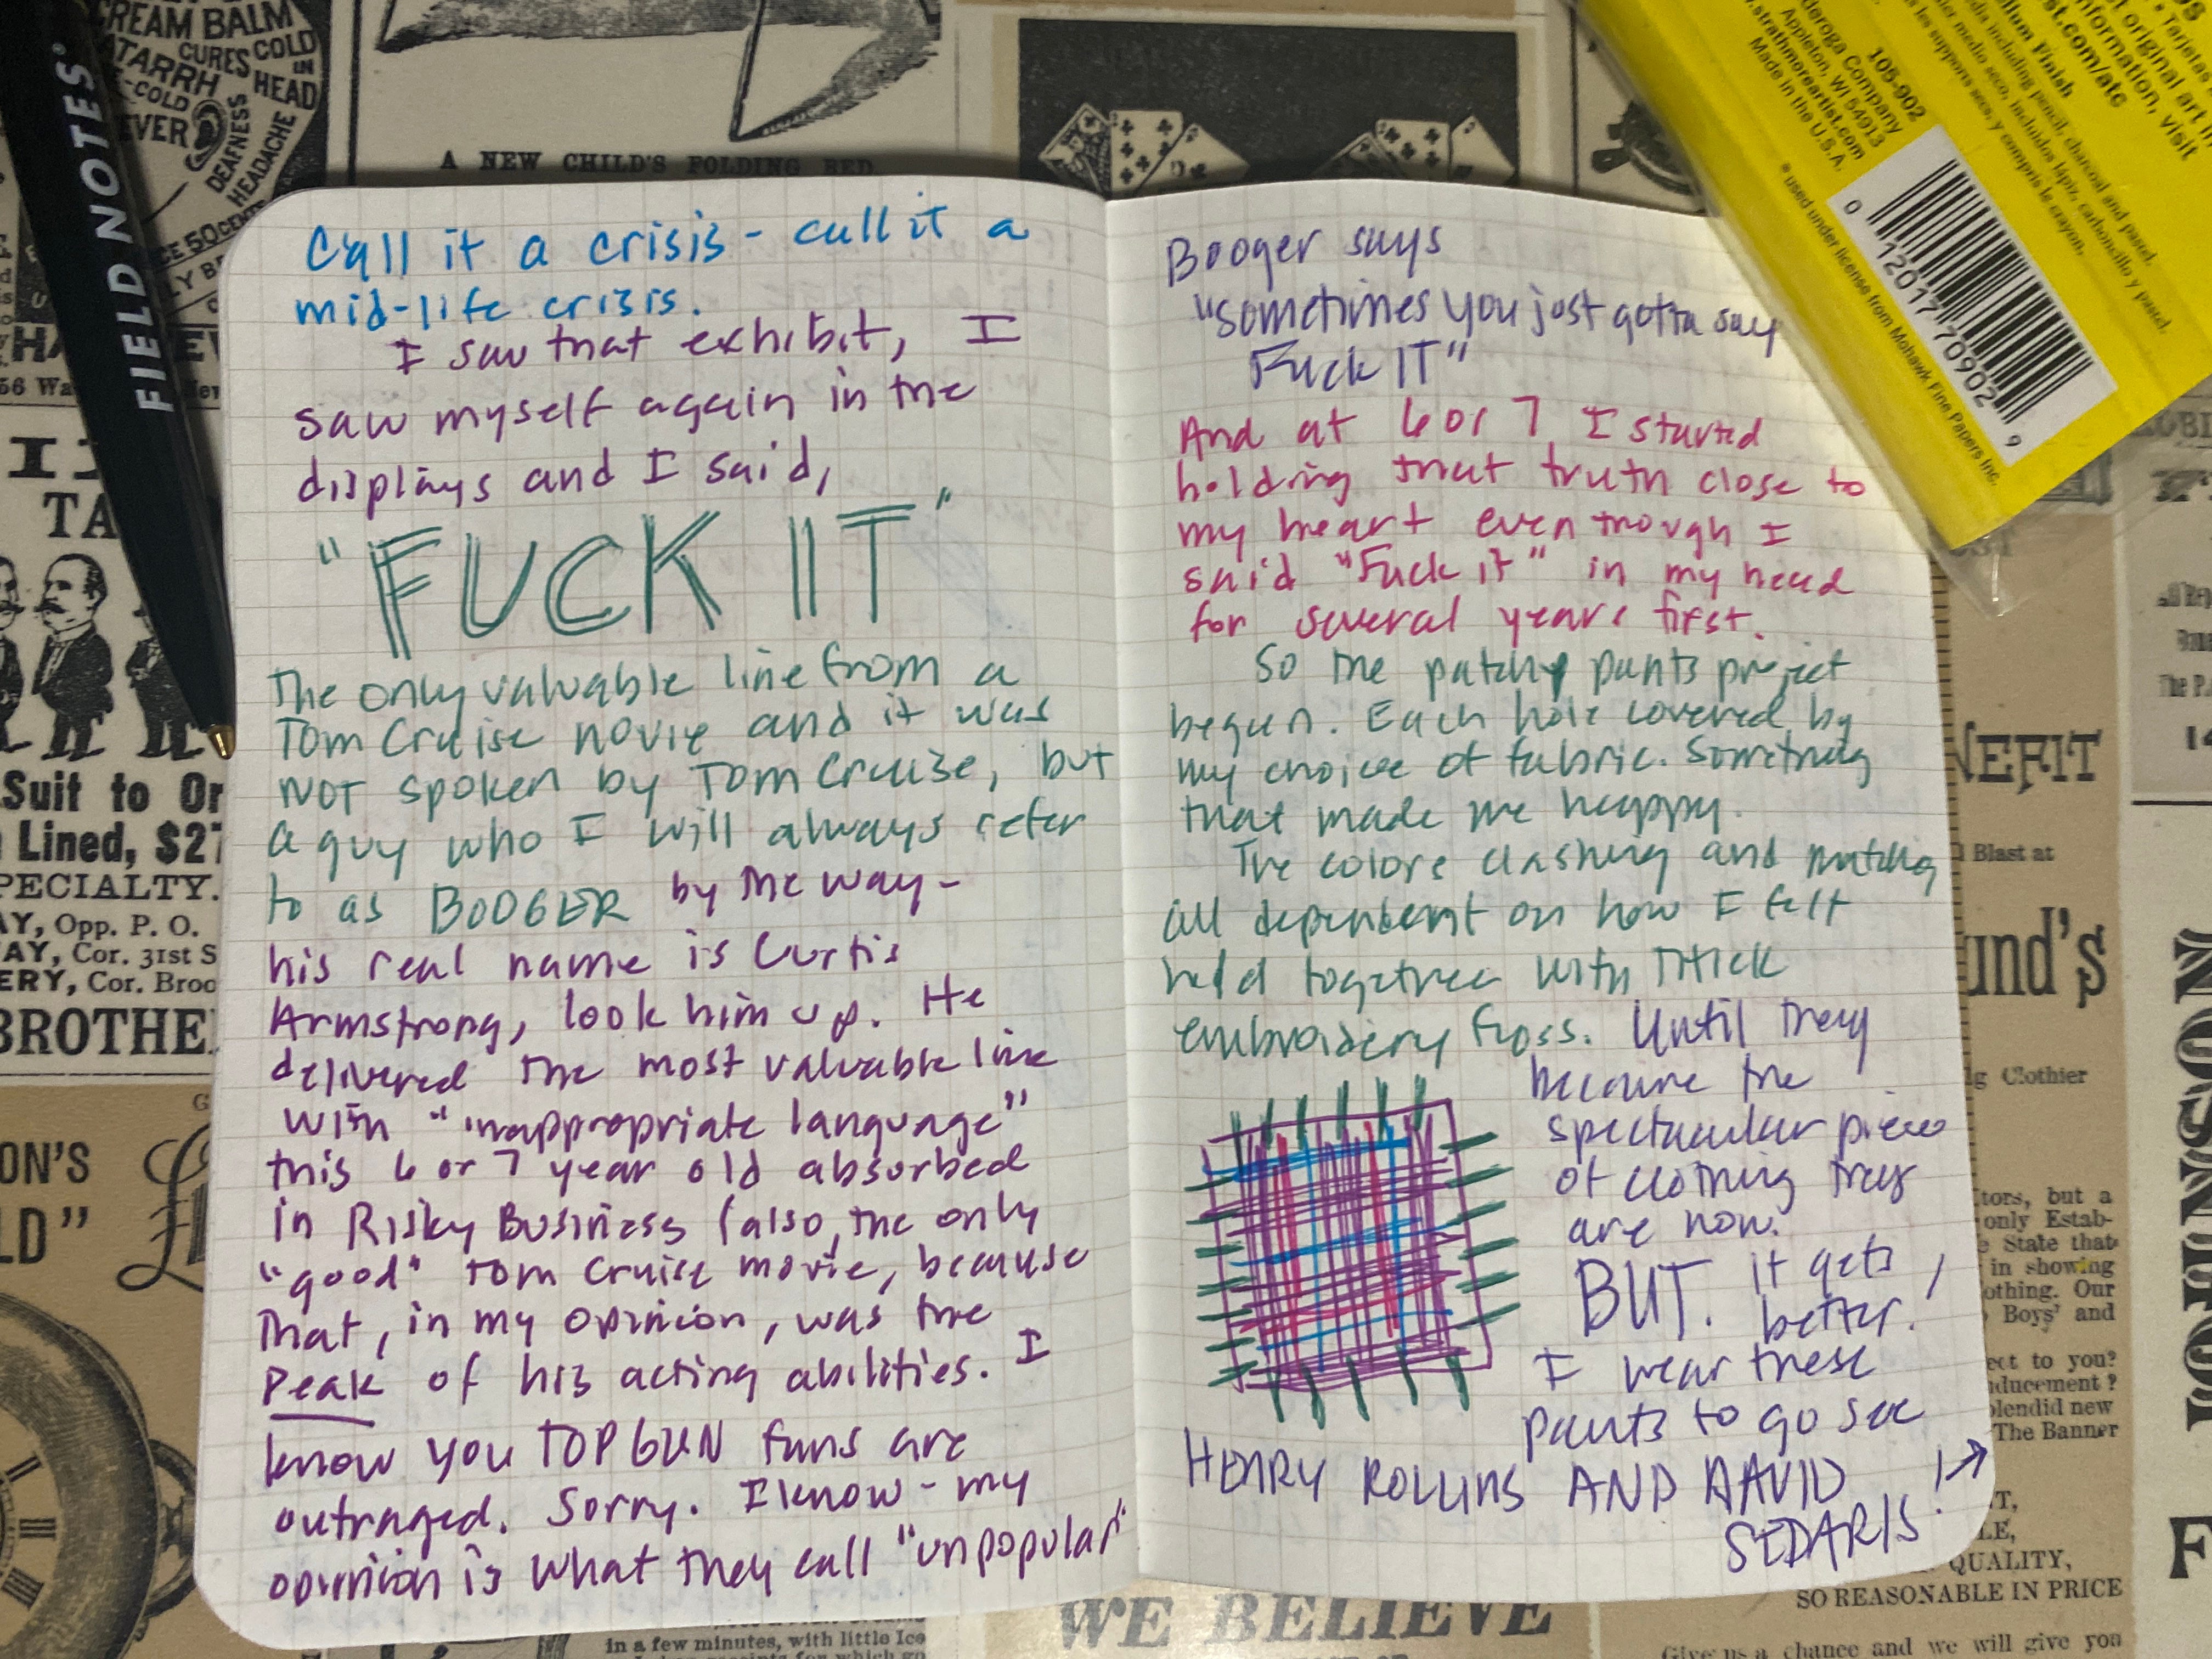 Call it a crisis - call it a
mid-life crisis.
I saw that exhibit, I
saw myself again in the
displays and I said,
"FUCK IT"
The only valuable line from a
Tom Cruise movie and it was
NOT spoken by Tom Cruise, but
a guy who I will always refer
to as BOOGER by the way -
his real name is Curtis
Armstrong, look him up. He
delivered the most valuable line
with "inappropriate language"
this 6 or 7 year old absorbed
in Risky Business (also, the only
"good" Tom Cruise movie, because
that, in my opinion, was the
Peak of his acting abilities. I
know you TOP GUN fans are
outraged. Sorry. I know - my
opinion is what they call "unpopular"
Booger says
"sometimes you just gotta say
Fuck IT"
And at 6 or 7 I started
holding that truth close to
my heart even though I
said "Fuck it" in my head
for several years first.
So the patchy pants project
began. Each hole covered by
my choice of fabric. Something
that made me happy.
The colors clashing and matching
all dependent on how I felt
held together with THICK
embroidery floss. Until they
became the
spectacular piece
of clothing they
are now.
BUT. it gets
better!
I wear these
pants to go see
HENRY ROLLINS AND DAVID
SEDARIS!
FIELD NOTES
CREAM BALM
CATARRH
CURES COLD
IN
HEAD
DEAFNESS
HEADACHE
50 CENTS
A NEW CHILD'S FOLDING BED
Suit to Or
Lined, $27
SPECIALTY.
AY, Opp. P. O.
AY, Cor. 31st S
ERY, Cor. Broo
BROTHE
ON'S
LD"
105-902
Appleton, WI 54913
Made in the U.S.A.
* used under license from Mohawk Fine Papers Inc.
0 12017 70902 9
NEFIT
Blast at
und's
Clothier
tors, but a
only Estab-
State that
in showing
othing. Our
Boys' and
ect to you?
ducement?
plendid new
The Banner
QUALITY,
SO REASONABLE IN PRICE
Give us a chance and we will give you
WE BELIEVE
in a few minutes, with little Ice